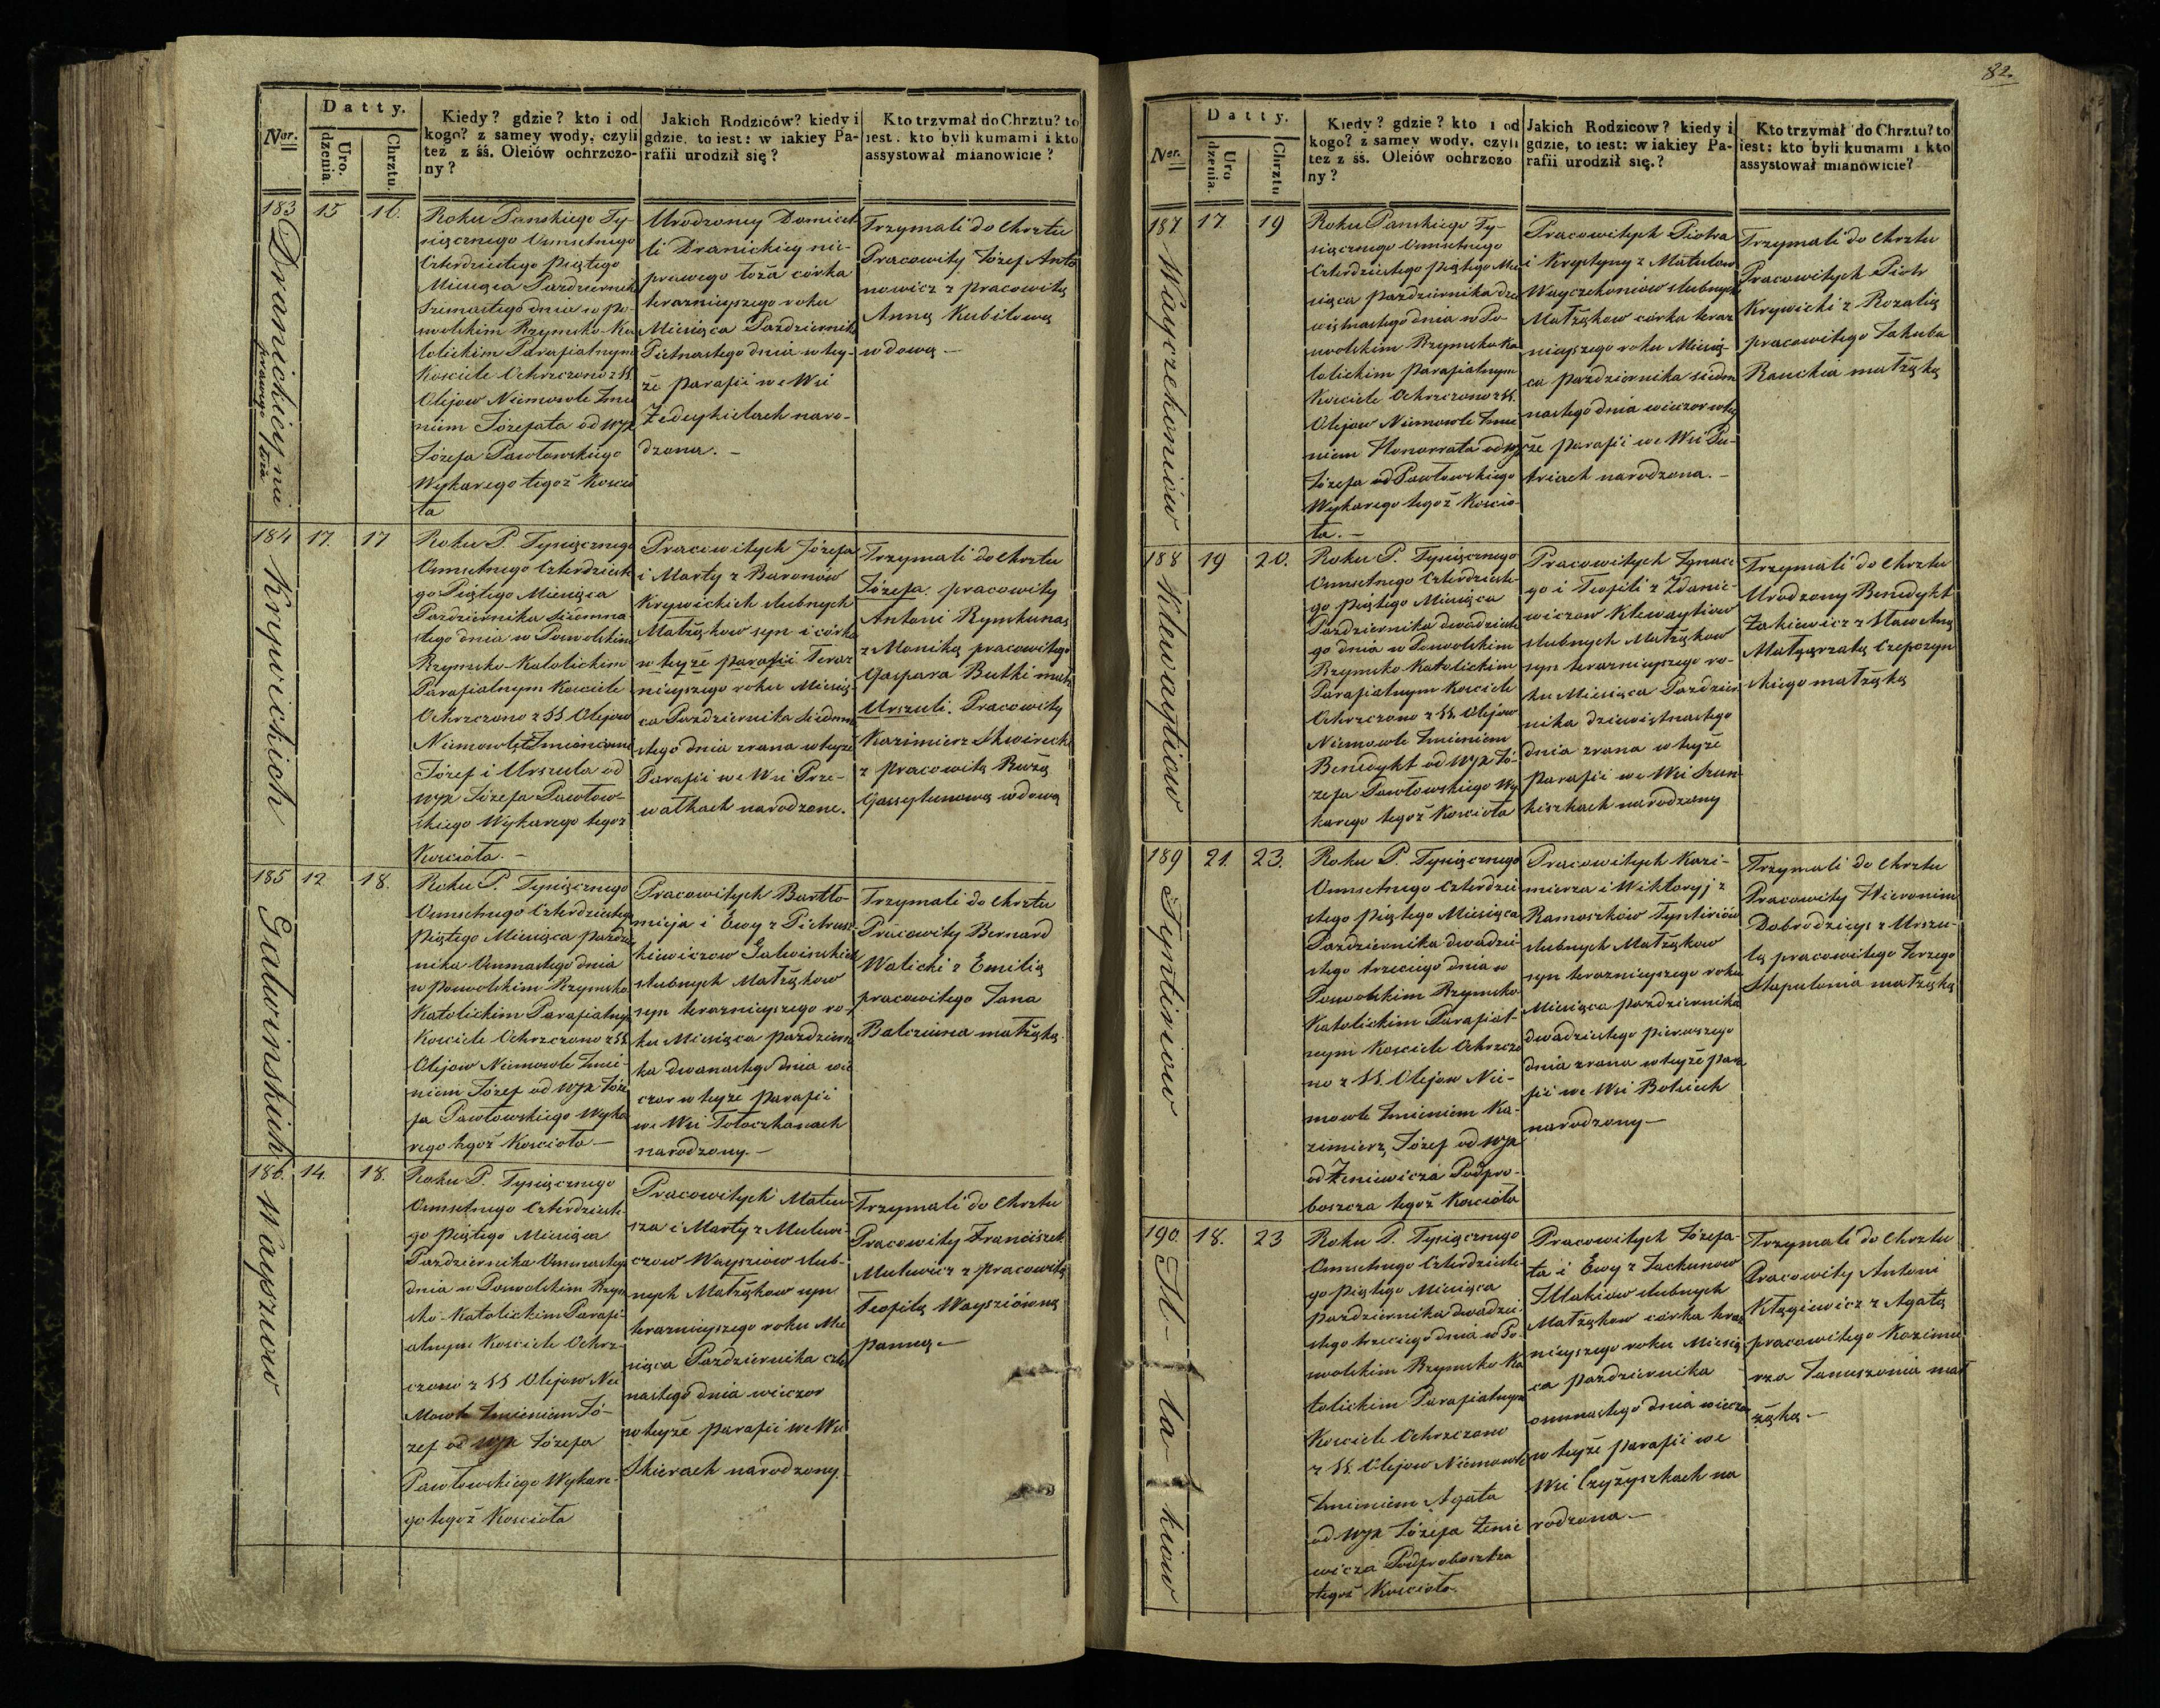 Datty.
Nor.
Uro.
dzenia.
Chrztu.
Kiedy? gdzie? kto i od
kogo? z samey wody, czyli
też z śś. Oleiów ochrzczo-
ny?
Jakich Rodziców? kiedy i
gdzie, to iest: w iakiey Pa-
rafii urodził się?
Kto trzymał do Chrztu? to
iest. kto byli kumami i kto
assystował mianowicie?
183
15
16.
Dranickiey nie
prawego łoża
Roku Panskiego Ty-
siącznego Osmsetnego
Czterdziestego piątego
Miesiąca Pazdziernika
Szesnastego dnia w Po-
swolskim Rzymsko-Ka
tolickim Parafialnym
Kosciele Ochrzczono z SS.
Olejow Niemowle Imie
niem Józefata od WJX
Józefa Pawłowskiego
Wykarego tegoż Koscio
ła
Urodzoney Domicel
li Dranickiey nie-
prawego łoża córka
teraznieyszego roku
Miesiąca Pazdziernika
Pietnastego dnia w tey-
że parafii we Wsi
Zedeykielach naro-
dzona. -
Trzymali do Chrztu
Pracowity Józef Anto
nowicz z pracowitą
Anną Kubilową
wdową -
184
17.
17
Krywickich
Roku P. Tysiącznego
Osmsetnego Czterdzieste
go Piątego Miesiąca
Pazdziernika Siedmna
stego dnia w Poswolskim
Rzymsko-Katolickim
Parafialnym Kosciele
Ochrzczono z SS. Olejow
Józef i Urszula od
WJX Józefa Pawłow-
skiego Wykarego tegoż
Kościoła. -
Pracowitych Józefa
i Marty z Baronów
Krywickich slubnych
Małżąkow syn i córka
w teyże parafii Teraz
nieyszego roku Miesią-
ca Pazdziernika Siedmna
stego dnia zrana w teyże
Parafii we Wsi Prze-
wałkach narodzone.
Trzymali do Chrztu
Józefa. pracowity
Antoni Rymkunas
z Moniką pracowitego
Gaspara Butki małż
Urszuli. Pracowity
Kazimierz Skwirecki
z pracowitą Ruzą
wdową
185
12
18.
Galwinskich
Roku P. Tysiącznego
Osmsetnego Czterdziestego
Piątego Miesiąca pazdzier
nika Osmnastego dnia
w poswolskim Rzymsko
Katolickim Parafialnym
Kosciele Ochrzczono z SS.
Olejow Niemowle Imie-
niem Józef od WJX Józe
fa Pawłowskiego Wyka
rego tegoż Kosciola -
Pracowitych Bartło-
mieja i Ewy z Pietrusz
kiewiczow Galwinskich
slubnych Małżąkow
syn teraznieyszego ro-
ku Miesiąca pazdzierni
ka dwanastego dnia wie
czor w teyże parafii
we Wsi Tołoczkanach
narodzony. -
Trzymali do Chrztu
Pracowity Bernard
Walicki z Emilią
pracowitego Jana
Balczuna małżąką.
186.
14.
18.
Wayszow
Roku P. Tysiącznego
Osmsetnego Czterdzieste-
go piątego Miesiąca
Pazdziernika Osmnastego
dnia w Poswolskim Rzym
sko-Katolickim Parafi-
alnym Kosciele Ochrz-
czono z SS Olejow Nie
mowle Imieniem Jó-
zef od WJX Józefa
Pawłowskiego Wykare-
go tegoż Kosciola
Pracowitych Mateu-
sza i Marty z Mulewi-
czow Wayszów slub-
nych Małżąkow syn
teraznieyszego roku Mie
siąca Pazdziernika czter
nastego dnia wieczor
w teyże parafii we Wsi
Skierach narodzony.
Trzymali do Chrztu
Pracowity Franciszek
Mulewicz z pracowitą
Teofilą Wayszówną
panną. -
82.
Datty.
Nor.
Uro
dzenia.
Chrztu
Kiedy? gdzie? kto i od
kogo? z samey wody, czyli
też z śś. Oleiów ochrzczo
ny?
Jakich Rodziców? kiedy i
gdzie, to iest: w iakiey Pa-
rafii urodził się.?
Kto trzymał do Chrztu? to
iest: kto byli kumami i kto
assystował mianowicie?
187
17.
19
Wayczekoniów
Roku Panskiego Ty-
siącznego Osmsetnego
Czterdziestego piątego Mie
siąca pazdziernika dzie
więtnastego dnia w Po-
swolskim Rzymsko Ka
tolickim parafialnym
Kosciele Ochrzczono z SS.
Olejow Niemowle Imie
niem Honorrata od WJX
Józefa od Pawłowskiego
Wykarego tegoż Koscio-
ła. -
Pracowitych Piotra
i Krystyny z Matulow
Wayczekoniów slubnych
Małżąkow córka teraz
nieyszego roku Miesią-
ca pazdziernika siedm
nastego dnia wieczor w tey
że parafii we Wsi Pu-
triach narodzona. -
Trzymali do Chrztu
Pracowitych Piotr
Krywicki z Rozalią
pracowitego Jakuba
małżąką
188
19
20.
Klewaytiow
Roku P. Tysiącznego
Osmsetnego Czterdzieste-
go piątego Miesiąca
Pazdziernika dwudzieste
go dnia w Poswolskim
Rzymsko Katolickim
Parafialnym Kosciele
Ochrzczono z SS. Olejow
Niemowle Imieniem
Benedykt od WJX Jó-
zefa Pawłowskiego Wy
karego tegoż Kosciola
Pracowitych Ignace
go i Teofili z Zdanie-
wiczow Klewaytiow
slubnych Małżąkow
syn teraznieyszego ro-
ku Miesiąca Pazdzier
nika dziewiętnastego
dnia zrana w teyże
parafii we Wsi Szun
kiszkach narodzony
Trzymali do Chrztu
Urodzony Benedykt
Zakiewicz z Sławetną
Małgarzatą Czepczyn
skiego małżąką
189
21.
23.
Tyntiriow
Roku P. Tysiącznego
Osmsetnego Czterdzie
stego piątego Miesiąca
Pazdziernika dwudzie-
stego trzeciego dnia w
Poswolskim Rzymsko
Katolickim Parafial-
nym Kosciele Ochrzczo
no z SS. Olejow Nie-
mowle Imieniem Ka-
zimierz, Józef od WJX
od Zeniewicza Podpro-
boszcza tegoż Kosciola
Pracowitych Kazi-
mierza i Wiktoryj z
Ramoszków Tyntiriów
slubnych Małżąkow
syn teraznieyszego roku
Miesiąca pazdziernika
dwudziestego pierwszego
dnia zrana w teyże para
fii we Wsi Bokiech
narodzony -
Trzymali do Chrztu
Pracowity Hieronim
Dobrodzieys z Urszu-
lą pracowitego Jerzego
Stapulonia małżąką
190.
18.
23
Il-la-kiow
Roku P. Tysiącznego
Osmsetnego Czterdzieste-
go piątego Miesiąca
pazdziernika dwudzie-
stego trzeciego dnia w Po-
swolskim Rzymsko Ka
tolickim Parafialnym
Kosciele Ochrzczono
z SS. Olejow Niemowle
Imieniem Agata
od WJX Józefa Zenie
wicza Podproboszcza
tegoż Kosciola.
Pracowitych Józefa-
ta i Ewy z Jackunow
Illakiow slubnych
Małżąkow córka teraz
nieyszego roku Miesią-
ca pazdziernika
osmnastego dnia wieczor
w teyże parafii we
Wsi Czyżyszkach na
rodzona. -
Trzymali do Chrztu
Pracowity Antoni
Kłągiewicz z Agatą
pracowitego Kazimie
rza Januszonia mał
żąką. -